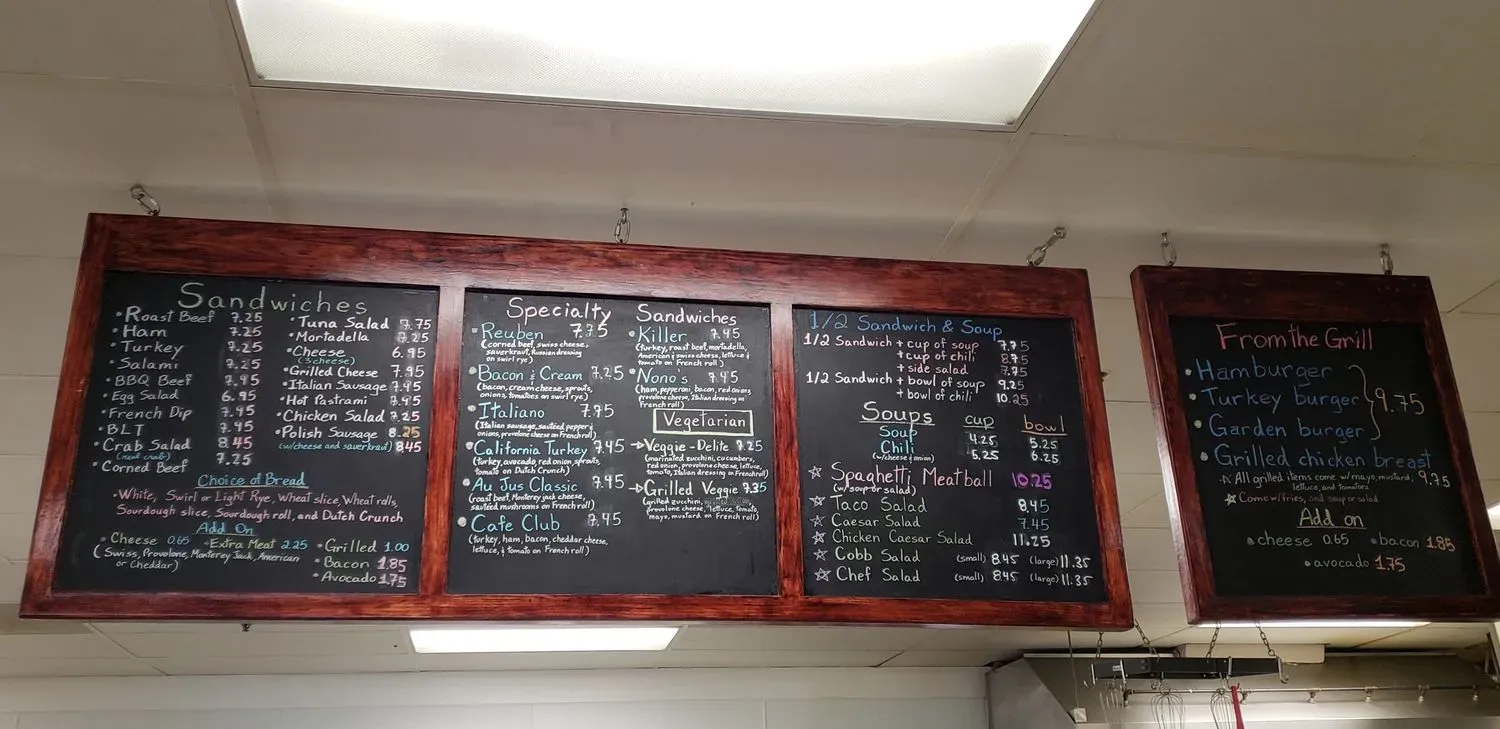 Sandwiches
• Roast Beef 7.25
• Ham 7.25
• Turkey 7.25
• Salami 7.25
• BBQ Beef 7.95
• Egg Salad 6.95
• French Dip 7.95
• BLT 7.95
• Crab Salad 8.45
(real crab)
• Corned Beef 7.25
• Tuna Salad 7.75
• Mortadella 7.25
• Cheese 6.95
(3 cheese)
• Grilled Cheese 7.95
• Italian Sausage 7.95
• Hot Pastrami 7.45
• Chicken Salad 7.25
• Polish Sausage 8.25
(w/cheese and saverkraut) 8.45
Choice of Bread
• White, Swirl or Light Rye, Wheat slice, Wheat rolls,
Sourdough slice, Sourdough roll, and Dutch Crunch
Add On
• Cheese 0.65 • Extra Meat 2.25
(Swiss, Provolone, Monterey Jack, American
or Cheddar)
• Grilled 1.00
• Bacon 1.85
• Avocado 1.75
Specialty Sandwiches
• Reuben 7.75
(corned beef, swiss cheese,
saverkraut, Russian dressing
on swirl rye)
• Bacon & Cream 7.25
(bacon, cream cheese, sprouts,
onions, tomatoes on swirl rye)
• Italiano 7.95
(Italian sausage, sautéed pepper &
onions, provolone cheese on French roll)
• California Turkey 7.45
(turkey, avocado, red onion, sprouts,
tomato on Dutch Crunch)
• Au Jus Classic 7.45
(roast beef, Monterey jack cheese,
sautéed mushrooms on French roll)
• Cafe Club 7.45
(turkey, ham, bacon, cheddar cheese,
lettuce, & tomato on French roll)
• Killer 7.45
(turkey, roast beef, mortadella,
American & swiss cheese, lettuce &
tomato on French roll)
• Nono's 7.45
(ham, pepperoni, bacon, red onions,
provolone cheese, Italian dressing on
French roll)
Vegetarian
→ Veggie-Delite 7.25
(marinated zucchini, cucumbers,
red onion, provolone cheese, lettuce,
tomato, Italian dressing on French roll)
→ Grilled Veggie 7.35
(grilled zucchini,
provolone cheese, lettuce, tomato,
mayo, mustard on French roll)
1/2 Sandwich & Soup
1/2 Sandwich + cup of soup 7.75
+ cup of chili 8.75
+ side salad 7.75
1/2 Sandwich + bowl of soup 9.25
+ bowl of chili 10.25
Soups cup bowl
Soup 4.25 5.25
Chili 5.25 6.25
(w/cheese & onion)
☆ Spaghetti Meatball 10.25
(w/soup or salad)
☆ Taco Salad 8.45
☆ Caesar Salad 7.45
☆ Chicken Caesar Salad 11.25
☆ Cobb Salad (small) 8.45 (large) 11.35
☆ Chef Salad (small) 8.45 (large) 11.35
From the Grill
• Hamburger
• Turkey burger } 9.75
• Garden burger
• Grilled chicken breast 9.75
☆ All grilled items come w/mayo, mustard,
lettuce, and tomatoes
☆ Come w/fries, and soup or salad
Add on
• cheese 0.65 • bacon 1.85
• avocado 1.75